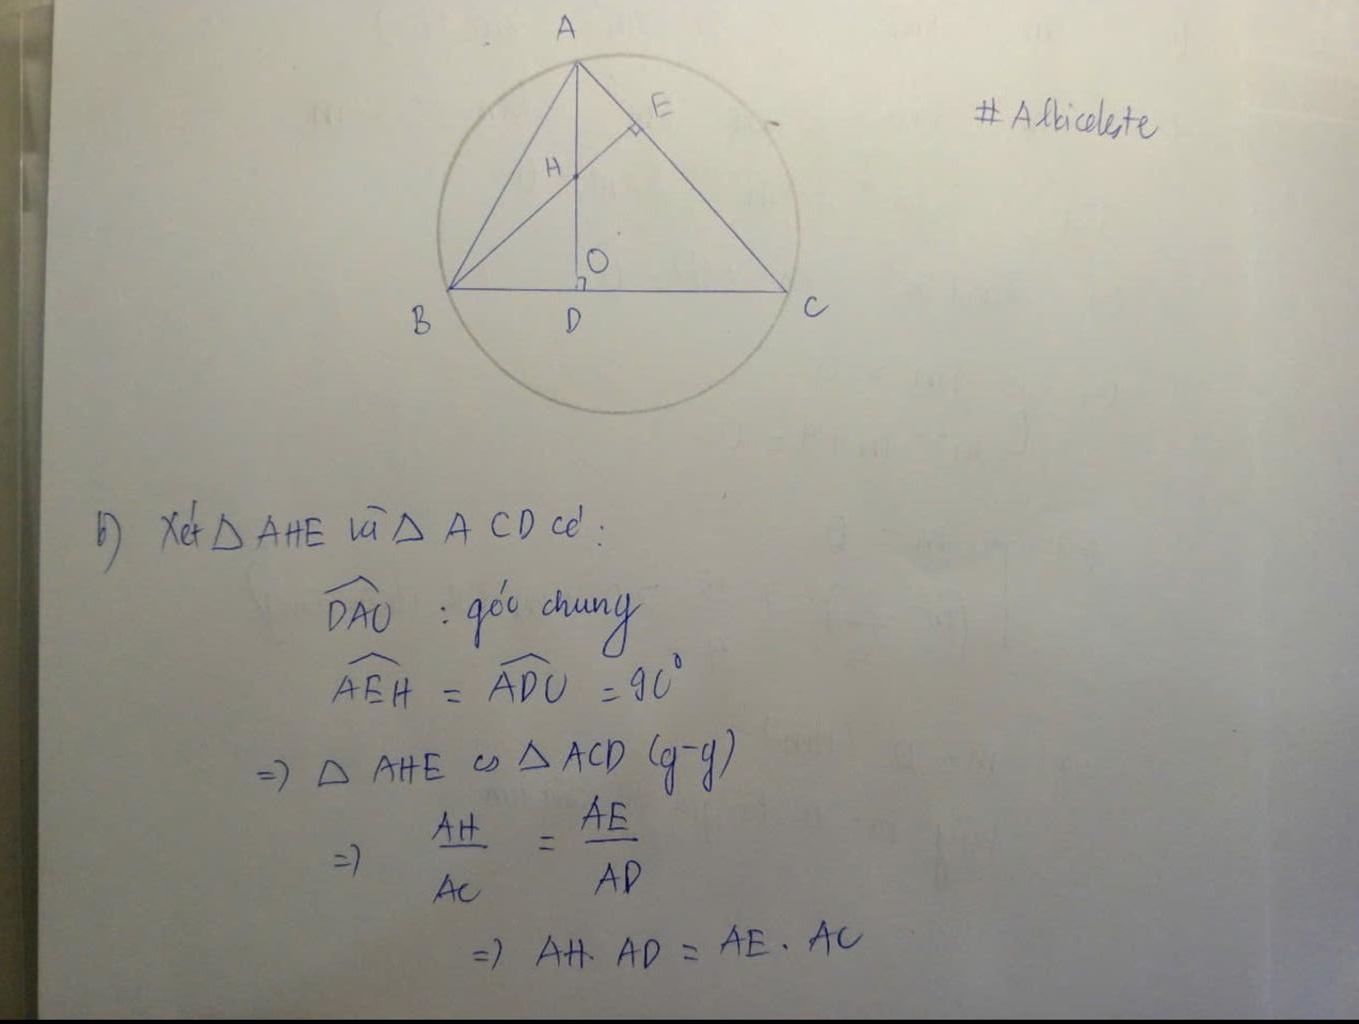 A
E
# Albiceleste
H
O
B
D
C
b) Xét Δ AHE và Δ ACD có:
DAC : góc chung
AEH = ADC = 90°
=) Δ AHE ∽ Δ ACD (g-g)
=) AH/AC = AE/AD
=) AH. AD = AE . AC